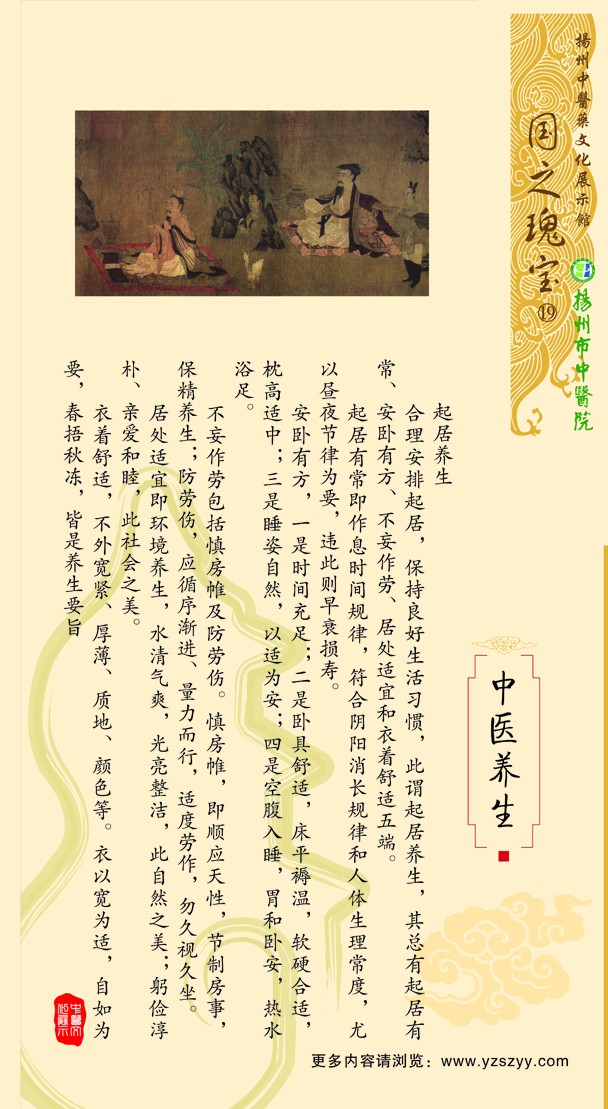 揚州中醫藥文化展示館
国之瑰宝⑲
揚州市中醫院
中医养生
起居养生
合理安排起居，保持良好生活习惯，此谓起居养生，其总有起居有
常、安卧有方、不妄作劳、居处适宜和衣着舒适五端。
起居有常即作息时间规律，符合阴阳消长规律和人体生理常度，尤
以昼夜节律为要，违此则早衰损寿。
安卧有方，一是时间充足；二是卧具舒适，床平褥温，软硬合适，
枕高适中；三是睡姿自然，以适为安；四是空腹入睡，胃和卧安，热水
浴足。
不妄作劳包括慎房帷及防劳伤。慎房帷，即顺应天性，节制房事，
保精养生；防劳伤，应循序渐进、量力而行，适度劳作，勿久视久坐。
居处适宜即环境养生，水清气爽，光亮整洁，此自然之美；躬俭淳
朴、亲爱和睦，此社会之美。
衣着舒适，不外宽紧、厚薄、质地、颜色等。衣以宽为适，自如为
要，春捂秋冻，皆是养生要旨
更多内容请浏览：www.yzszyy.com